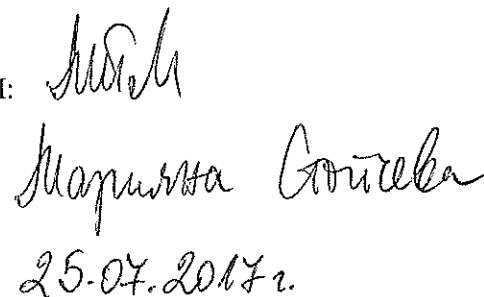 Марияна Стойчева
25.07.2017 г.